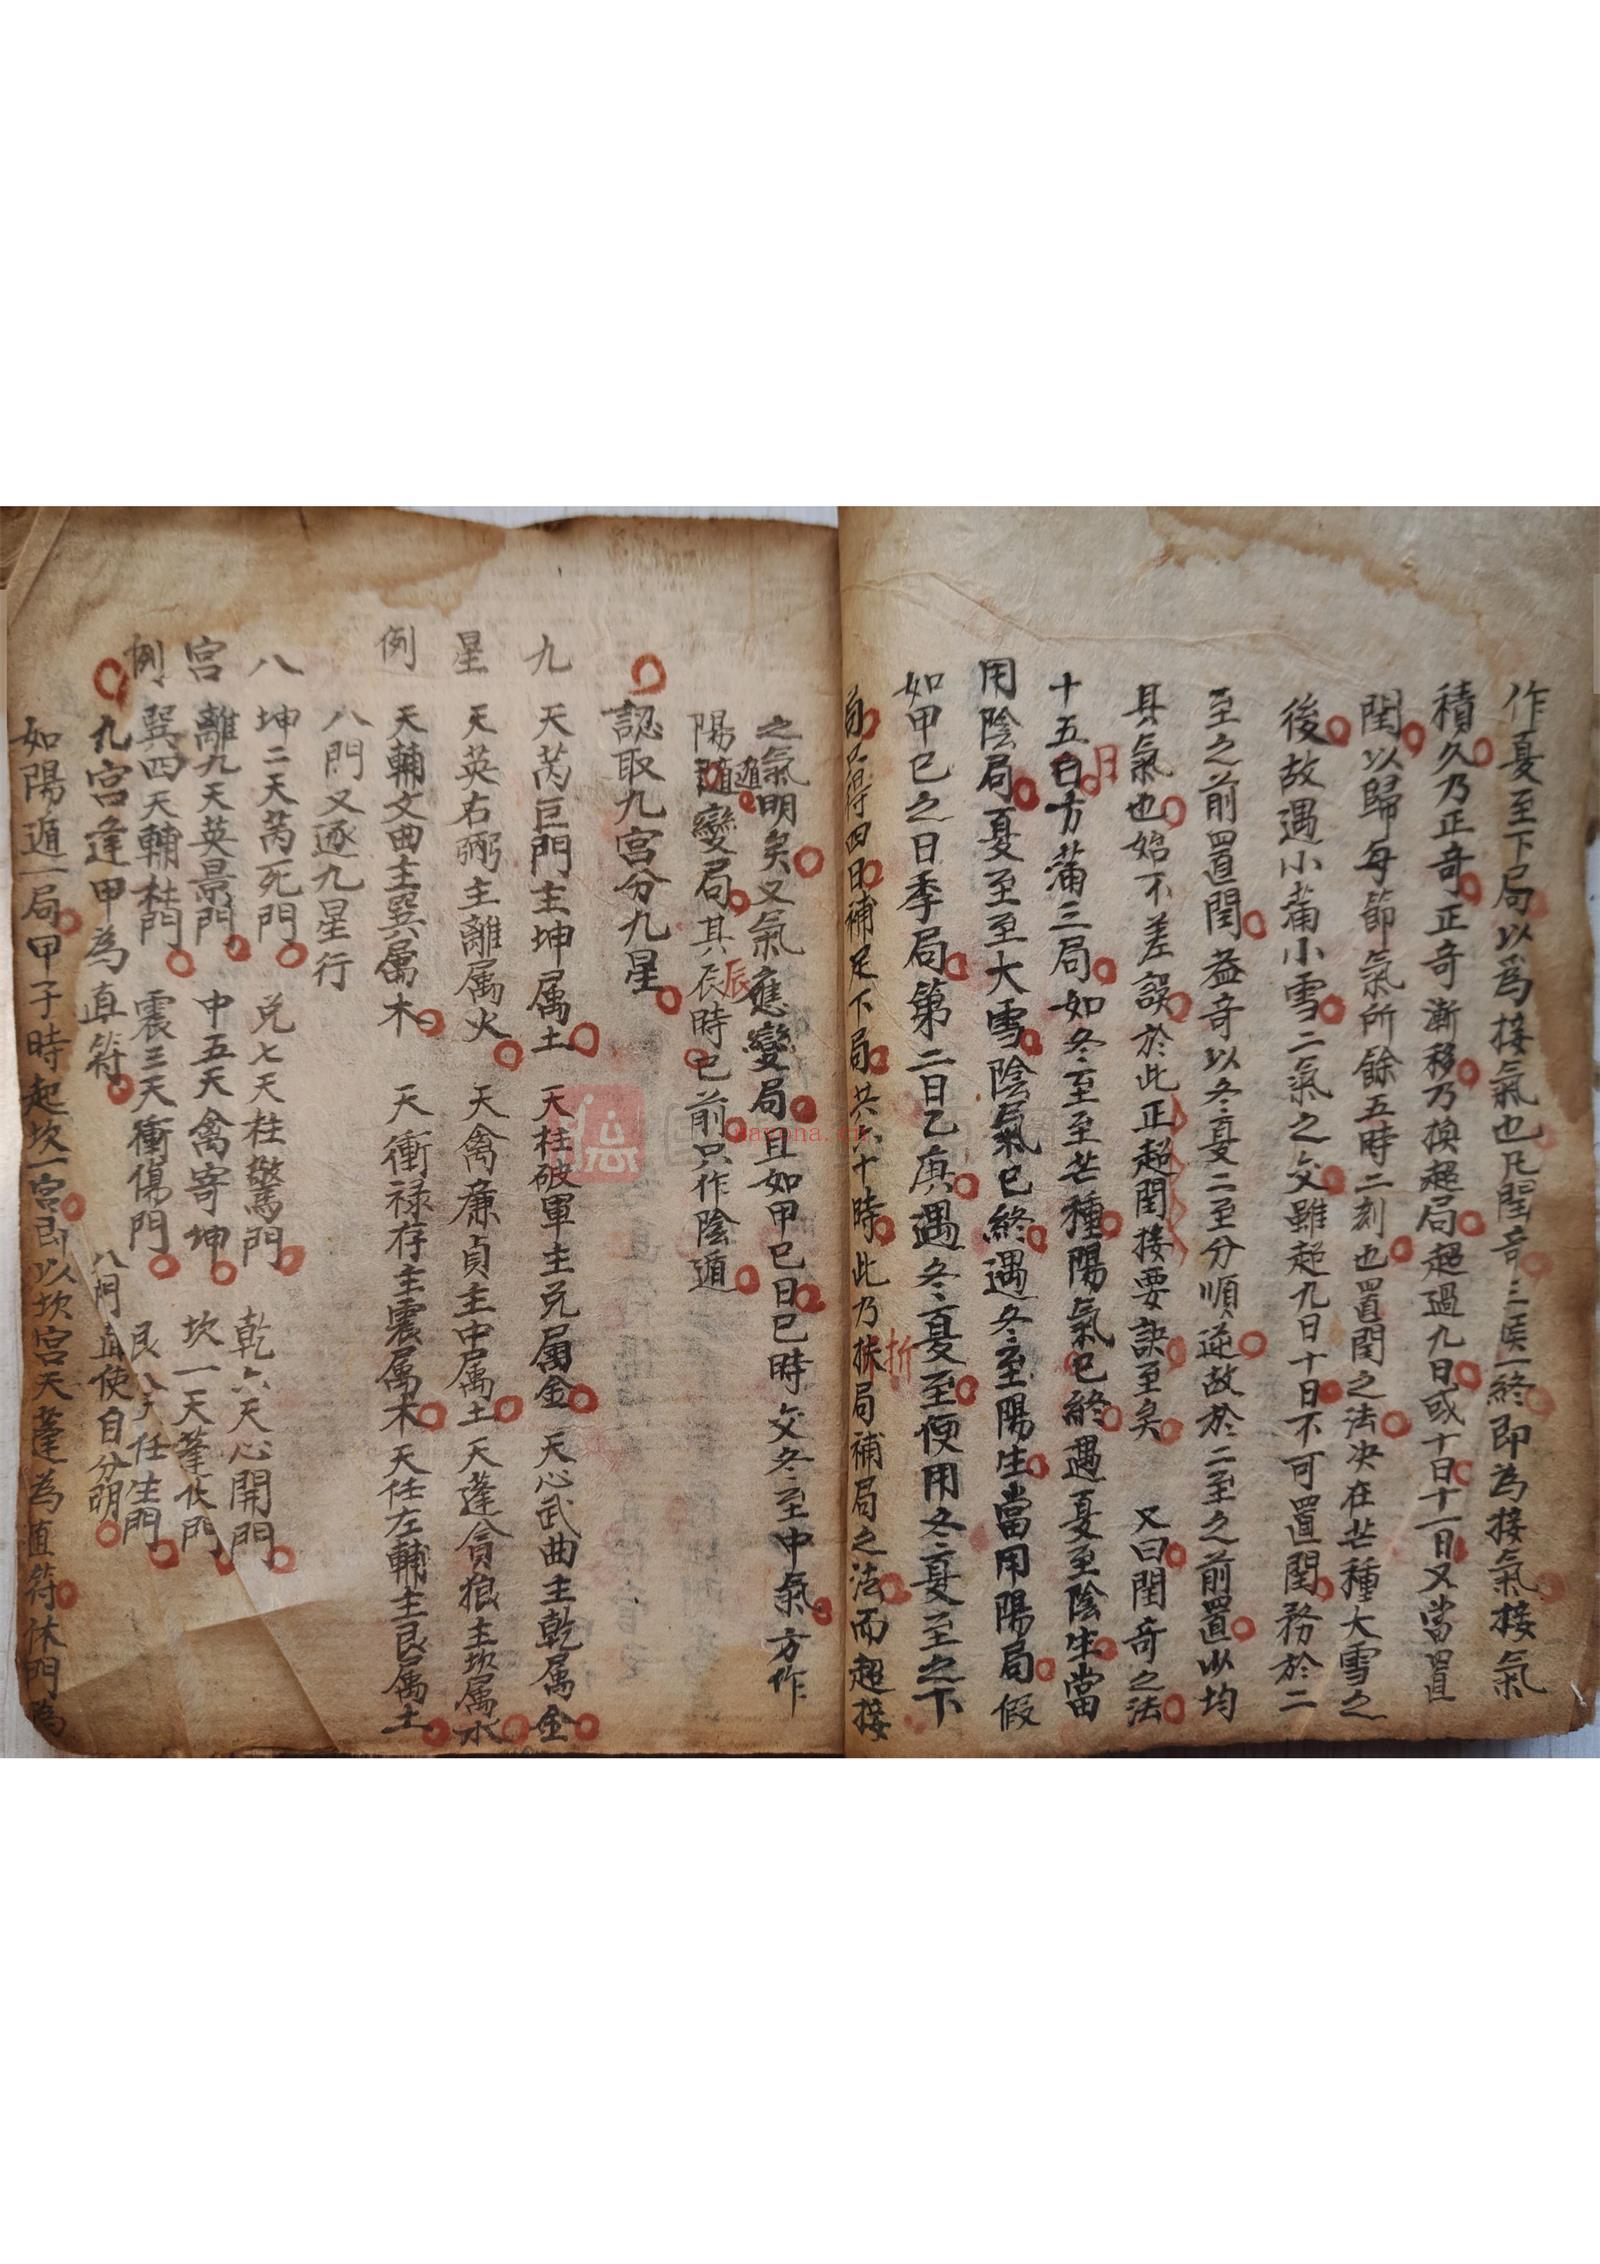 作夏至下局以為接氣也凡閏奇三候一終即為接氣接氣
積久乃正奇正奇漸移乃換超局超過九日或十日十一日又當置
閏以歸每節氣所餘五時二刻也置閏之法决在芒種大雪之
後故遇小蒲小雪二氣之交雖超九日十日不可置閏務於二
至之前置閏葢奇以冬夏二至分順逆故於二至之前置以均
其氣也始不差誤於此正超閏接要訣至矣 又曰閏奇之法
十五白方蒲三局如冬至至芒種陽氣已終遇夏至陰生當
日
用陰局夏至至大雪陰氣已終遇冬至陽生當用陽局假
如甲已之日季局第二日乙庚遇冬夏至便用冬夏至之下
局只得四日補足下局共六十時此乃扶局補局之法而超接
折
之氣明矣又氣應變局且如甲巳日巳時交冬至中氣方作
陽隨變局其辰時已前只作陰遁
遁
辰
認取九宮分九星
九 天芮巨門主坤属土 天柱破軍主兑属金 天心武曲主乾属金
星 天英右弼主離属火 天禽廉貞主中属土 天蓬貪狼主坎属水
例 天輔文曲主巽属木 天衝禄存主震属木 天任左輔主艮属土
八門又逐九星行
八 坤二天芮死門 兑七天柱驚門 乾六天心開門
宮 離九天英景門 中五天禽寄坤 坎一天蓬休門
例 巽四天輔杜門 震三天衝傷門 艮八天任生門
九宮逢甲為直符 八門直使自分明
如陽遁一局甲子時起坎一宮即以坎宮天蓬為直符休門為
dayona.cn